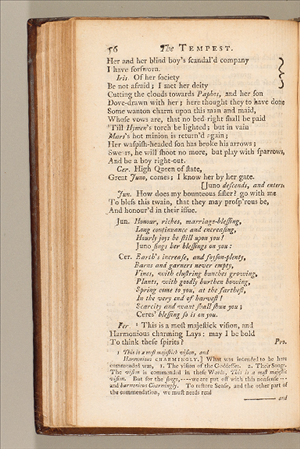 56 The TEMPEST.
Her and her blind boy's scandal'd company
I have forsworn.
Iris. Of her society
Be not afraid; I met her deity
Cutting the clouds towards Paphos, and her son
Dove-drawn with her; here thought they to have done
Some wanton charm upon this man and maid,
Whose vows are, that no bed-right shall be paid
'Till Hymen's torch be lighted; but in vain
Mars's hot minion is return'd again;
Her waspish-headed son has broke his arrows;
Swears, he will shoot no more, but play with sparrows,
And be a boy right-out.
Cer. High Queen of state,
Great Juno, comes; I know her by her gate.
[Juno descends, and enters.
Jun. How does my bounteous sister? go with me
To bless this twain, that they may prosp'rous be,
And honour'd in their issue.
Jun. Honour, riches, marriage-blessing,
Long continuance and encreasing,
Hourly joys be still upon you!
Juno sings her blessings on you:
Cer. Earth's increase, and foyson-plenty,
Barns and garners never empty,
Vines, with clustring bunches growing,
Plants, with goodly burthen bowing,
Spring come to you, at the farthest,
In the very end of harvest!
Scarcity and want shall shun you;
Ceres' blessing so is on you.
Fer. 1 This is a most majestick vision, and
Harmonious charming Lays: may I be bold
To think these spirits? Pro.
1 This is a most majestick vision, and
Harmonious CHARMINGLY.] What was intended to be here
commended was, 1. The vision of the Goddesses. 2. Their Songs.
The vision is commended in these Words, This is a most majestic
vision. But for the songs,---we are put off with this nonsense ---
and harmonious Charmingly. To restore Sense, and the other part of
the commendation, we must read
and